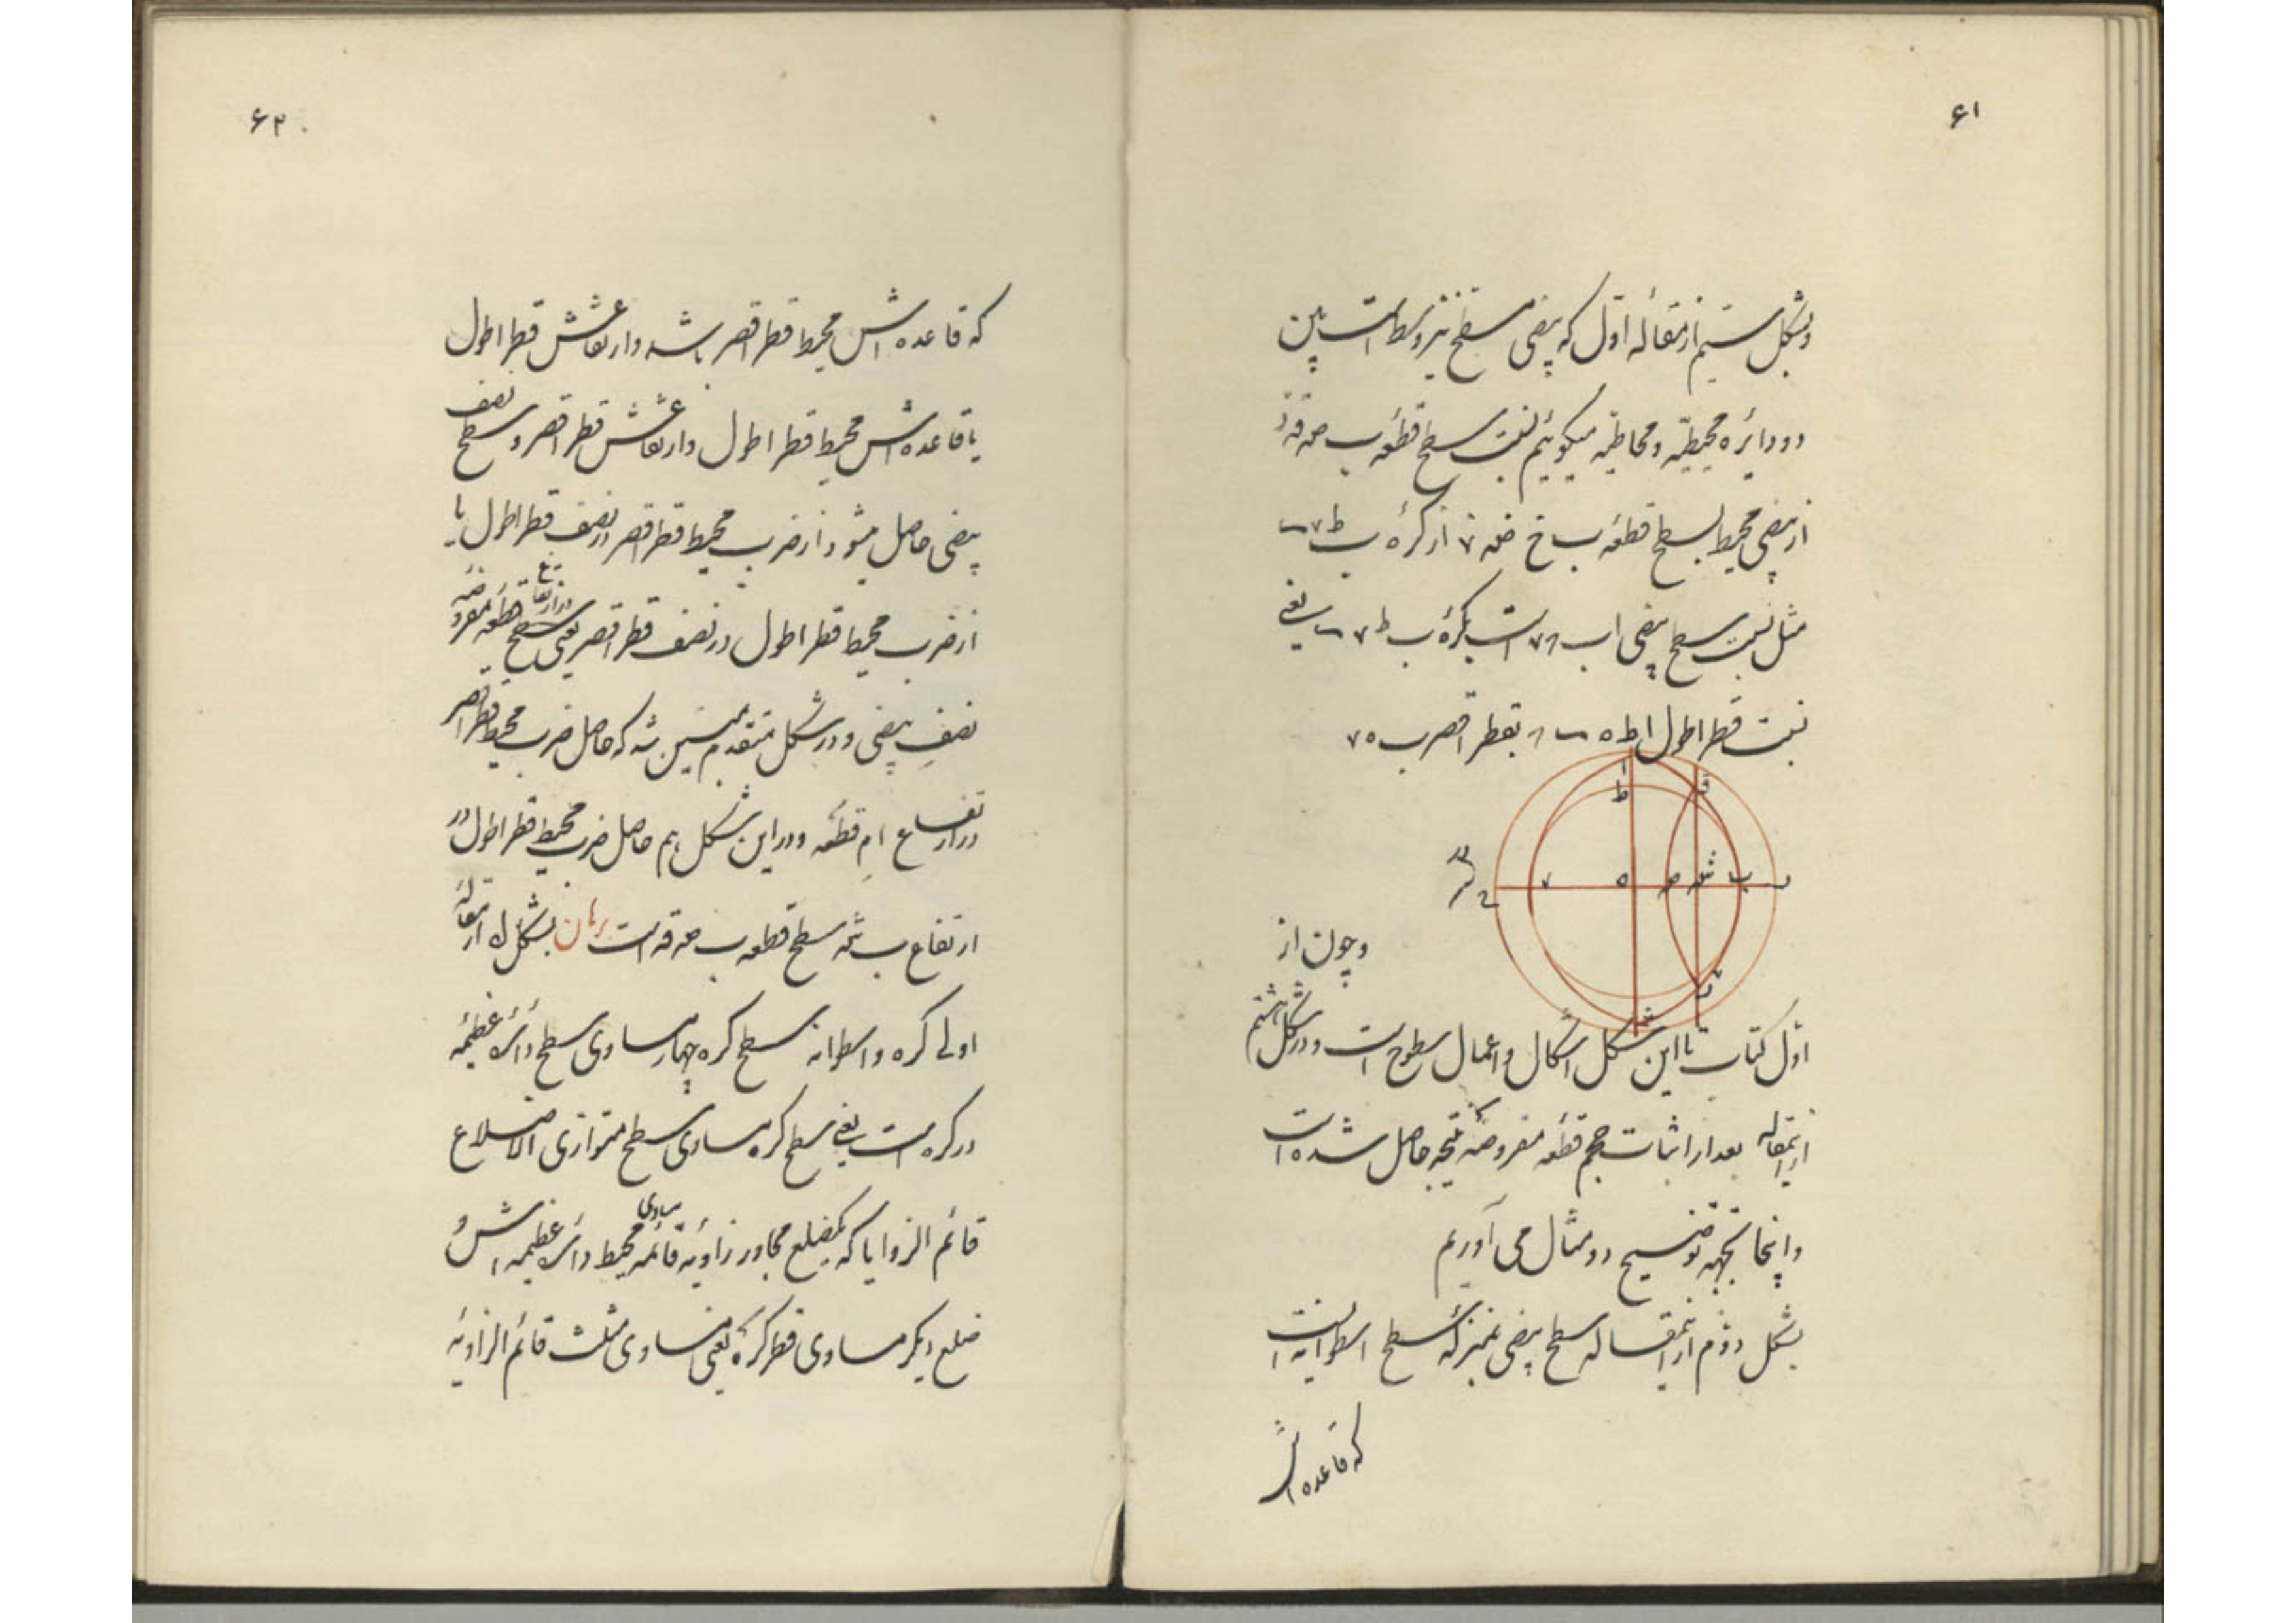 ۶۱
وبشکل سیم از مقالهٔ اول که بیضی مسطح نیز وسط است بین
دو دایره محیطیّه و محاطیّه میکوئیم نسبت سطح قطعهٔ ب صه قه
از بیضی محیط بسطح قطعهٔ ب از کرهٔ ب ط
مثل نسبت سطح بیضی اب است بکرهٔ ب ط یعنی
نسبت قطر اطول بقطر اقصر ب ه ۷
ا
ط
ق
۷
ه
صه
شه
ب
وچون از
اول کتاب تا این شکل اشکال و اعمال سطوح است و در شکل هشتم
از اینمقاله بعد از اثبات حجم قطعه مفروضه نتیجه حاصل شده است
واینجا بجهه توضیح دو مثال می آوریم
بشکل دوم از اینمقاله سطح بیضی بمنزله سطح اسطوانه ایست
که قاعده اش
۶۲
که قاعده اش محیط قطر اقصر باشد وارتفاعش قطر اطول
یا قاعده اش محیط قطر اطول وارتفاعش قطر اقصر و سطح نصف
بیضی حاصل میشود از ضرب محیط قطر اقصر در نصف قطر اطول یا
از ضرب محیط قطر اطول در نصف قطر اقصر یعنی در ارتفاع سطح قطعه مفروضه
نصف بیضی و در شکل متقدم مبین شد که حاصل ضرب محیط قطر اقصر
در ارتفاع ام قطعه ودر این شکل هم حاصل ضرب محیط قطر اطول در
ارتفاع ب شه سطح قطعه ب صه قه است برهان بشکل لا از مقالهٔ
اولی کره و اسطوانه سطح کره چهار مساوی سطح دائره عظیمه
در کره است یعنی سطح کره مساوی سطح متوازی الاضلاع
قائم الزوایا که یکضلع مجاور زاویه قائمه مساوی محیط دائره عظیمه اش و
ضلع دیکر مساوی قطر کره یعنی مساوی مثلث قائم الزاویه